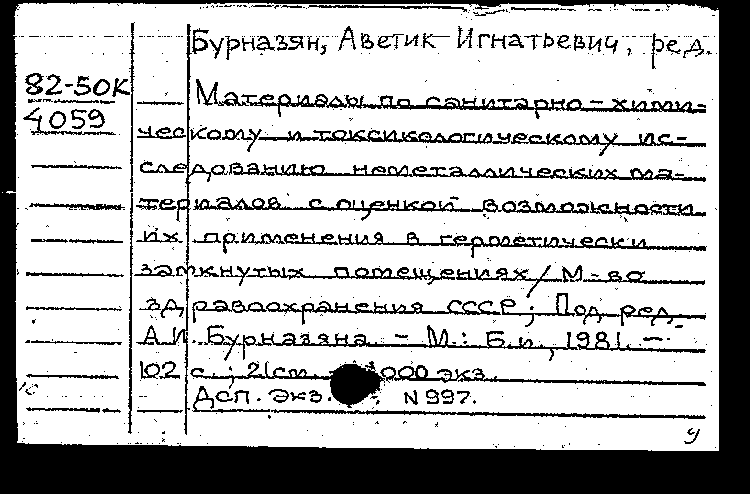 Бурназян, Аветик Игнатьевич, ред.
82-50К
4059
Материалы по санитарно-хими-
ческому и токсикологическому ис-
следованию неметаллических ма-
териалов с оценкой возможности
их применения в герметически
замкнутых помещениях/ М-во
здравоохранения СССР; Под ред.
А.И. Бурназяна - М.: Б.и., 1981. -
102 с.; 21см. - 000 экз.
Дсп. Экз. N 997.